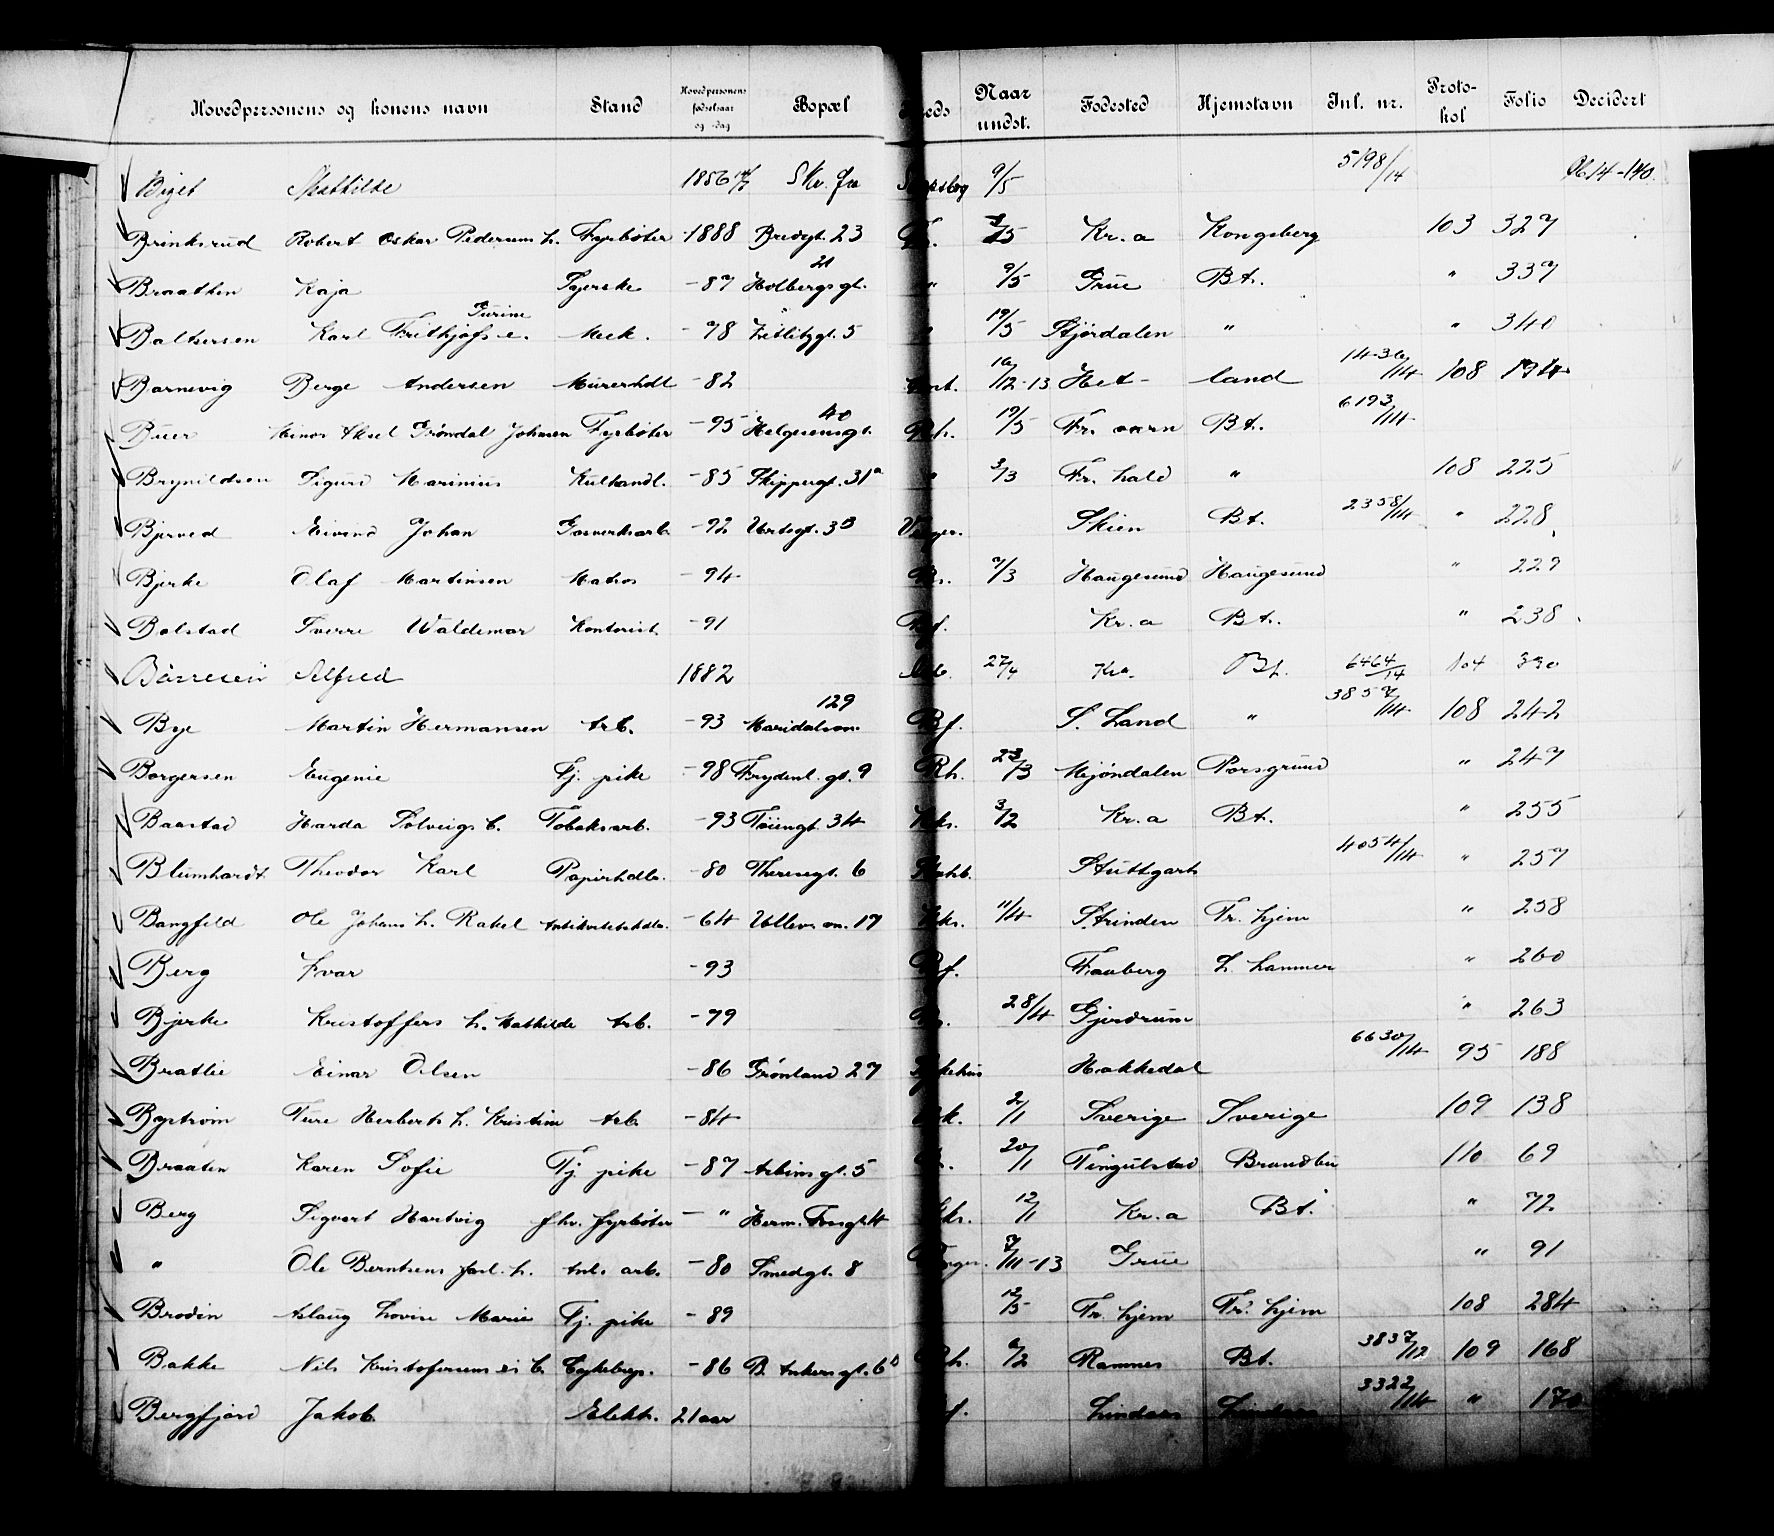 Hovedpersonens og konens navn Stand Hovedpersonens fødselsaar og -dag Bopæl Naar undst. Fødested Hjemstavn Jnl. nr. Proto-kol Folio Decidert
Mathilde 1856 9/5 5198/14
Brinksrud Robert Oskar Pedersens h. Fyrbøter -1888 Bredgt. 23 Kr.a Kongsberg 103 327
Braathen Kaja Syerske -87 Holbergs gt. 21 9/5 Grue Bt. " 337
Baltsersen Karl Frithjofs e. Turine Mek. -78 5 19/5 Stjørdalen " " 340
Barnevig Berge Andersen Murerhdl -82 16/12-13 Het- land 1436/14 108 194
Buer Aksel Grøndal Johnsen Fyrbøter -95 Helgesensgt. 40 Rh. 19/5 Fr. værn Bt. 6193/14
Brynildsen Sigurd Marinius Kulhandl. -85 Skippergt. 31a " 3/3 Fr. hald " 108 225
Bjerved Eivind Johan Gasverksarb. -92 Urtegt. 3B Skien Bt. 2358/14 " 228
Bjerke Olaf Martinsen Matros -94 7/3 Haugesund Haugesund " 229
Bolstad Sverre Waldemar Kontorist -91 Kr.a Bt. " 238
Børresen Alfred 1882 27/4 Kra. Bt. 6464/14 104 390
Bye Martin Hermansen Arb. -93 Maridalsvn. 129 Bf. S. Land " 3857/14 108 242
Borgersen Eugenie Tj. pike -98 Frydenl. gt. 9 Rh. 23/3 Mjøndalen Porsgrund " 247
Baastad Harda Solveigs b. Tobaksarb. -93 Tøiengt. 34 3/2 Kr.a Bt. " 255
Blumhardt Theodor Karl Papirhdlr. -80 Theresegt. 6 Stuttgart 4054/14 " 257
Bangfeld Ole Johans h. Rakel Antikvitetshdlr. -64 Ullevs vn. 17 11/4 Strinden Tr. hjem " 258
Berg Ivar -93 Faaberg L. hammer " 260
Bjerke Kristoffers h. Mathilde Arb. -79 28/4 Gjerdrum " 263
Bratlie Einar Olsen -86 Grønland 27 Sykehus Hakkedal 6630/14 95 188
Bystrøm Ture Herberts h. Kristine Arb. -84 2/1 Sverige Sverige 109 138
Braaten Karen Sofie Tj. pike -87 Arbins gt. 5 20/1 Tingelstad Brandbu 110 69
Berg Sigvart Hartvig fhv. fyrbøter - " Herm. Fossgt. 4 12/1 Kr.a Bt. " 72
" Ole Berntsens forl. h. Anl. arb. -80 Smedgt. 8 7/11-13 Grue " 91
Brodin Aslaug Lovise Marie Tj. pike -89 12/5 Tr. hjem Tr. hjem 108 284
Bakke Nils Kristofersens Cykelrep. -86 B. Ankers gt. 6b Rh. 6/2 Ramnes Bt. 3837/12 109 168
Bergfjord Jakob Elektr. 21 aar Lindaas Lindaas 3322/14 " 170